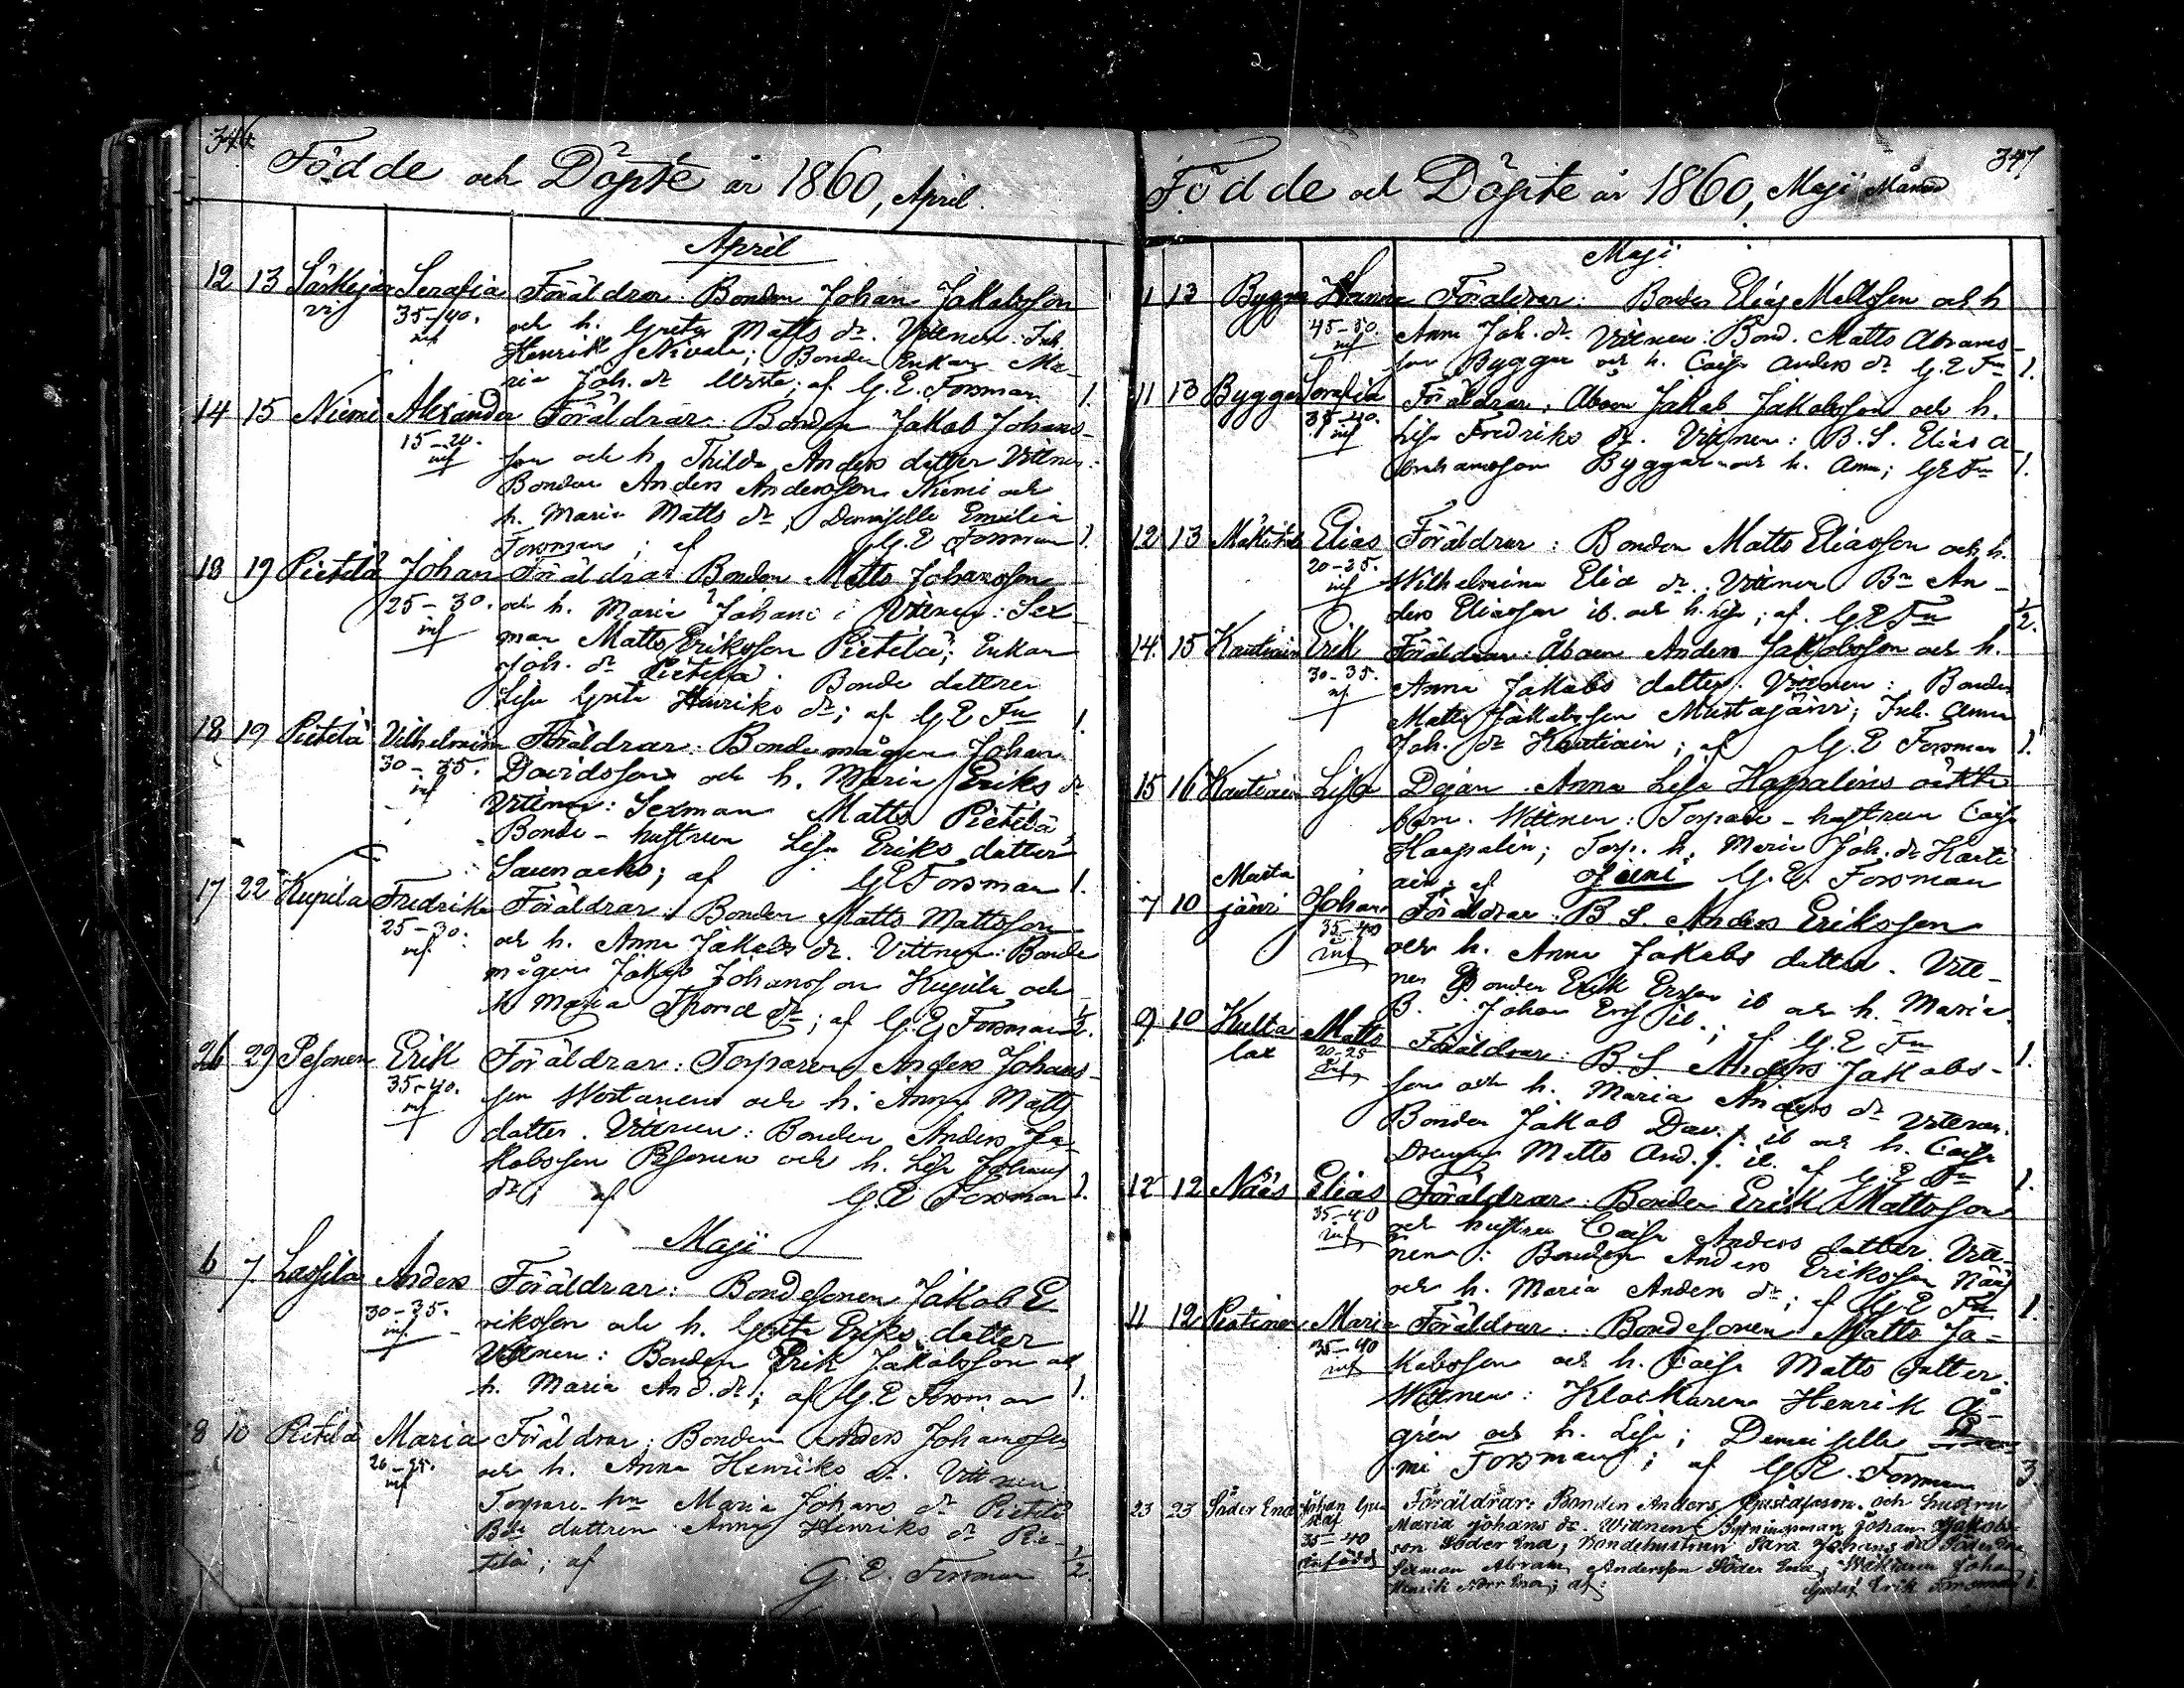 344
Födde och Döpte år 1860, April.
April
12 13 Särkijär Serafia Föräldrar: Bonden Johan Jakobsson
vi 35-40. och h. Greta Matts dr. Vittnen: Inh.
inf Henrik Nivala; Bonde Enkan Ma-
ria Joh. dr; af G. E. Forsman 1.
14 15 Niemi Alexander Föräldrar: Bonden Jakob Johans-
15-20. son och h. Thilda Anders dotter Vittnen:
inf Bonden Anders Andersson Niemi och
h. Maria Matts dr; Demoiselle Emilia
Forsman; af G. E Forsman 1.
18 19 Pietilä Johan Föräldrar Bonden Matts Johansson
25-30. och h. Maria Johans; Vittnen: Sex
inf man Matts Eriksson Pietilä; Enkan
Joh. dr Pietilä. Bonde dottren
Lisa Greta Henriks dr; af G E Fn 1.
18 19 Pietilä Vilhelmina Föräldrar: Bondemågen Johan
30-35. Davidsson och h. Maria Eriks dr
inf Vittnen: Sexman Matts Pietilä
Bonde-hustrun Lisa Eriks dotter
Saunaoks; af G E Forsman 1.
17 22 Kupila Fredrika Föräldrar: Bonden Matts Mattsson
25-30. och h. Anna Jakobs dr. Vittnen: Bonde
inf mågen Jakob Johansson Kupila och
h Maria Thomæ dr; af G. E Forsman 1/2.
26 29 Pesonen Erik Föräldrar: Torparen Anders Johans-
35-40. son och h. Anna Matts
inf dotter. Vittnen: Bonden Anders Ja-
kobsson Pesonen och h. Lisa Johans
dr; af G E Forsman 1.
Maji
6 7. Lassila Anders Föräldrar: Bondesonen Jakob E-
30-35. riksson och h. Greta Eriks dotter
inf. Vittnen: Bonden Erik Jakobsson och
h. Maria And. dr; af G. E Forsman 1.
8 10 Pietilä Maria Föräldrar: Bonden Anders Johansson
och h. Anna Henriks dr. Vittnen
inf Torpare hu Maria Johans dr Pietilä
dottren Anna Henriks dr Pie-
tilä; af G. E. Forsman 1/2.
347
Födde och Döpte år 1860, Maji Månad
Maji
11 13 Byggar Hanna Föräldrar: Bonden Elias Mattsson och h
45-50. Anna Joh. dr Vittnen: Bond. Matts Abrams-
inf son Byggar och h. Caisa Anders dr G. E Fn 1.
11 13 Byggar Föräldrar: Åboen Jakob Jakobsson och h.
35-40. Lisa Fredriks dr. Vittnen: B. S. Elias A-
inf brahamsson Byggar och h. Anna; G E Fn 1.
12 13 Elias Föräldrar: Bonden Matts Eliasson och h.
20-25. Wilhelmina Eliæ dr. Vittnen Bn An-
inf ders Eliasson ib. och h. Lisa; af. G. E Fn 1/2.
14. 15 Kautiain Erik Föräldrar: Åboen Anders Jakobsson och h.
30-35. Anna Jakobs dotter. Vittnen: Bonden
inf Matts Jakobsson Mustajärvi; Inh. Anna
Joh. dr Kautiain; af G. E Forsman 1.
15 16 Kautiain Lisa Dejan Anna Lisa Haapalins oäkta
barn. Wittnen: Torpare-hustrun Caisa
Haapalin; Torp. h. Maria Joh. dr Kauti
ain; af G. E. Forsman
Juni
7 10 Musta järvi Johan Föräldrar: B S. Anders Eriksson
35-40 och h. Anna Jakobs dotter. Vitt-
inf nen Bonden Erik Ersson ib och h. Maria.
B. S. Johan Erss. ib.; af G. E Fn 1.
9. 10 Kulta lax Matts Föräldrar: B S Anders Jakobs-
20-25 son och h. Maria Anders dr Vittnen.
inf Bonden Jakob Dav. s. ib och h. Caisa
Drengen Matts And. s. ib. af G E Fn 1.
12 12 Näis Elias Föräldrar: Bonden Erik Mattsson
35-40 och hustru Caisa Anders dotter. Vitt-
inf nena: Bonden Anders Eriksson Näis
och h. Maria Anders dr; af G. E Fn 1.
11 12 Maria Föräldrar: Bondesonen Matts Ja-
35-40 kobsson och h. Caisa Matts dotter.
inf Wittnen: Klockaren Henrik Å-
grén och h. Lisa; Demoiselle
mi Forsman; af G. E. Forsman 3.
23 23 Söder Ena Johan Gu- Föräldrar: Bonden Anders Gustafsson och hustru
staf Maria Johans dr. Wittnen: Johan Jakobs-
35-40 son Söder Ena; Bondehustrun Sara Johans dr Söder Ena
infödd Sexman Abram Andersson Söder Ena; Johan
Henrik Norr Ena; af: Gustaf Erik Forsman 1.